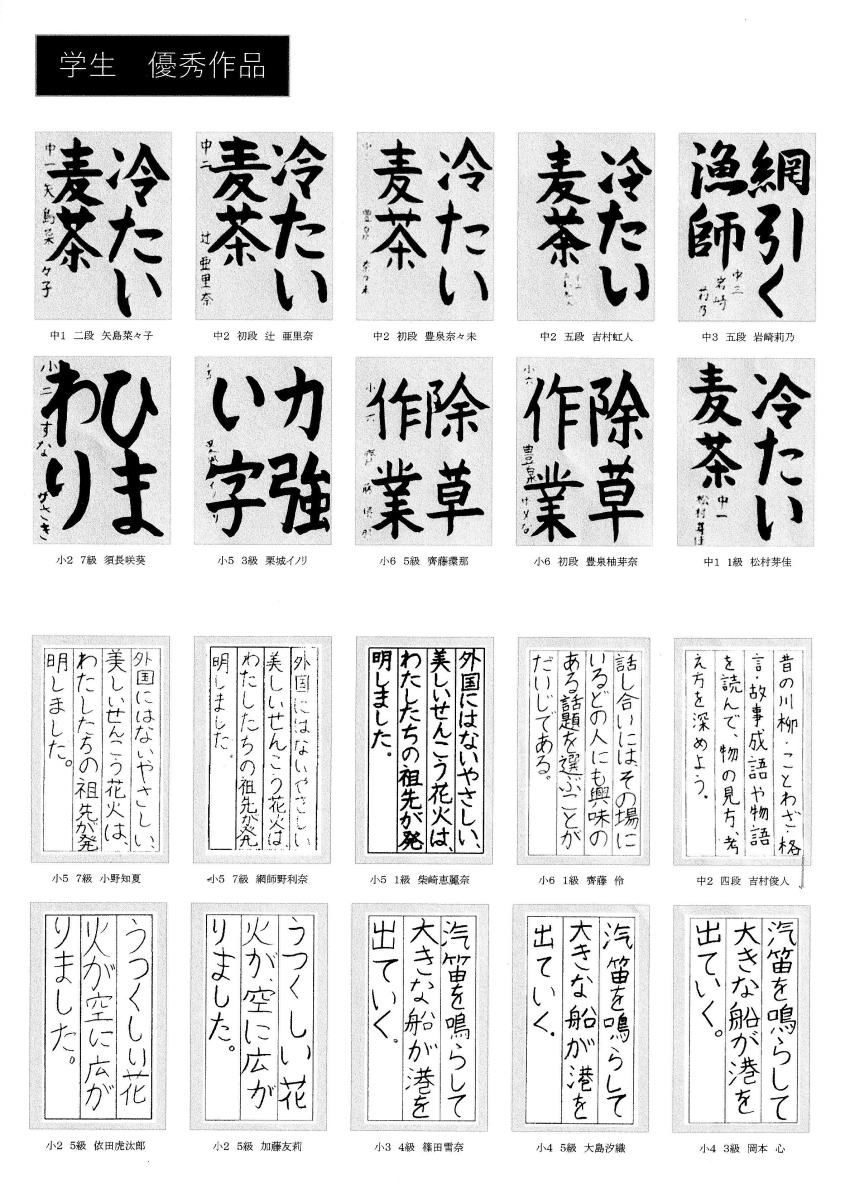 学生　優秀作品
冷たい
麦茶
中一 矢島菜々子
中1 二段 矢島菜々子
冷たい
麦茶
中二 辻 亜里奈
中2 初段 辻 亜里奈
冷たい
麦茶
豊泉 奈々未
中2 初段 豊泉奈々未
冷たい
麦茶
中2 五段 吉村虹人
網引く
漁師
中三 岩崎 莉乃
中3 五段 岩崎莉乃
ひま
わり
小二 すなが さき
小2 7級 須長咲葵
力強
い字
小5 3級 栗城イノリ
除草
作業
小六
小6 5級 齊藤環那
除草
作業
小六 豊泉 ゆめな
小6 初段 豊泉柚芽奈
冷たい
麦茶
中一 松村芽佳
中1 1級 松村芽佳
外国にはないやさしい、
美しいせんこう花火は、
わたしたちの祖先が発
明しました。
小5 7級 小野知夏
外国にはないやさしい
美しいせんこう花火は
わたしたちの祖先が発
明しました。
小5 7級 網師野利奈
外国にはないやさしい、
美しいせんこう花火は、
わたしたちの祖先が発
明しました。
小5 1級 柴崎恵麗奈
話し合いには、その場に
いるどの人にも興味の
ある話題を選ぶことが
だいじである。
小6 1級 齊藤 伶
昔の川柳・ことわざ・格
言・故事成語や物語
を読んで、物の見方、考
え方を深めよう。
中2 四段 吉村俊人
うつくしい花
火が空に広が
りました。
小2 5級 依田虎汰郎
うつくしい花
火が空に広が
りました。
小2 5級 加藤友莉
汽笛を鳴らして
大きな船が港を
出ていく。
小3 4級 篠田雪奈
汽笛を鳴らして
大きな船が港を
出ていく。
小4 5級 大島汐織
汽笛を鳴らして
大きな船が港を
出ていく。
小4 3級 岡本 心